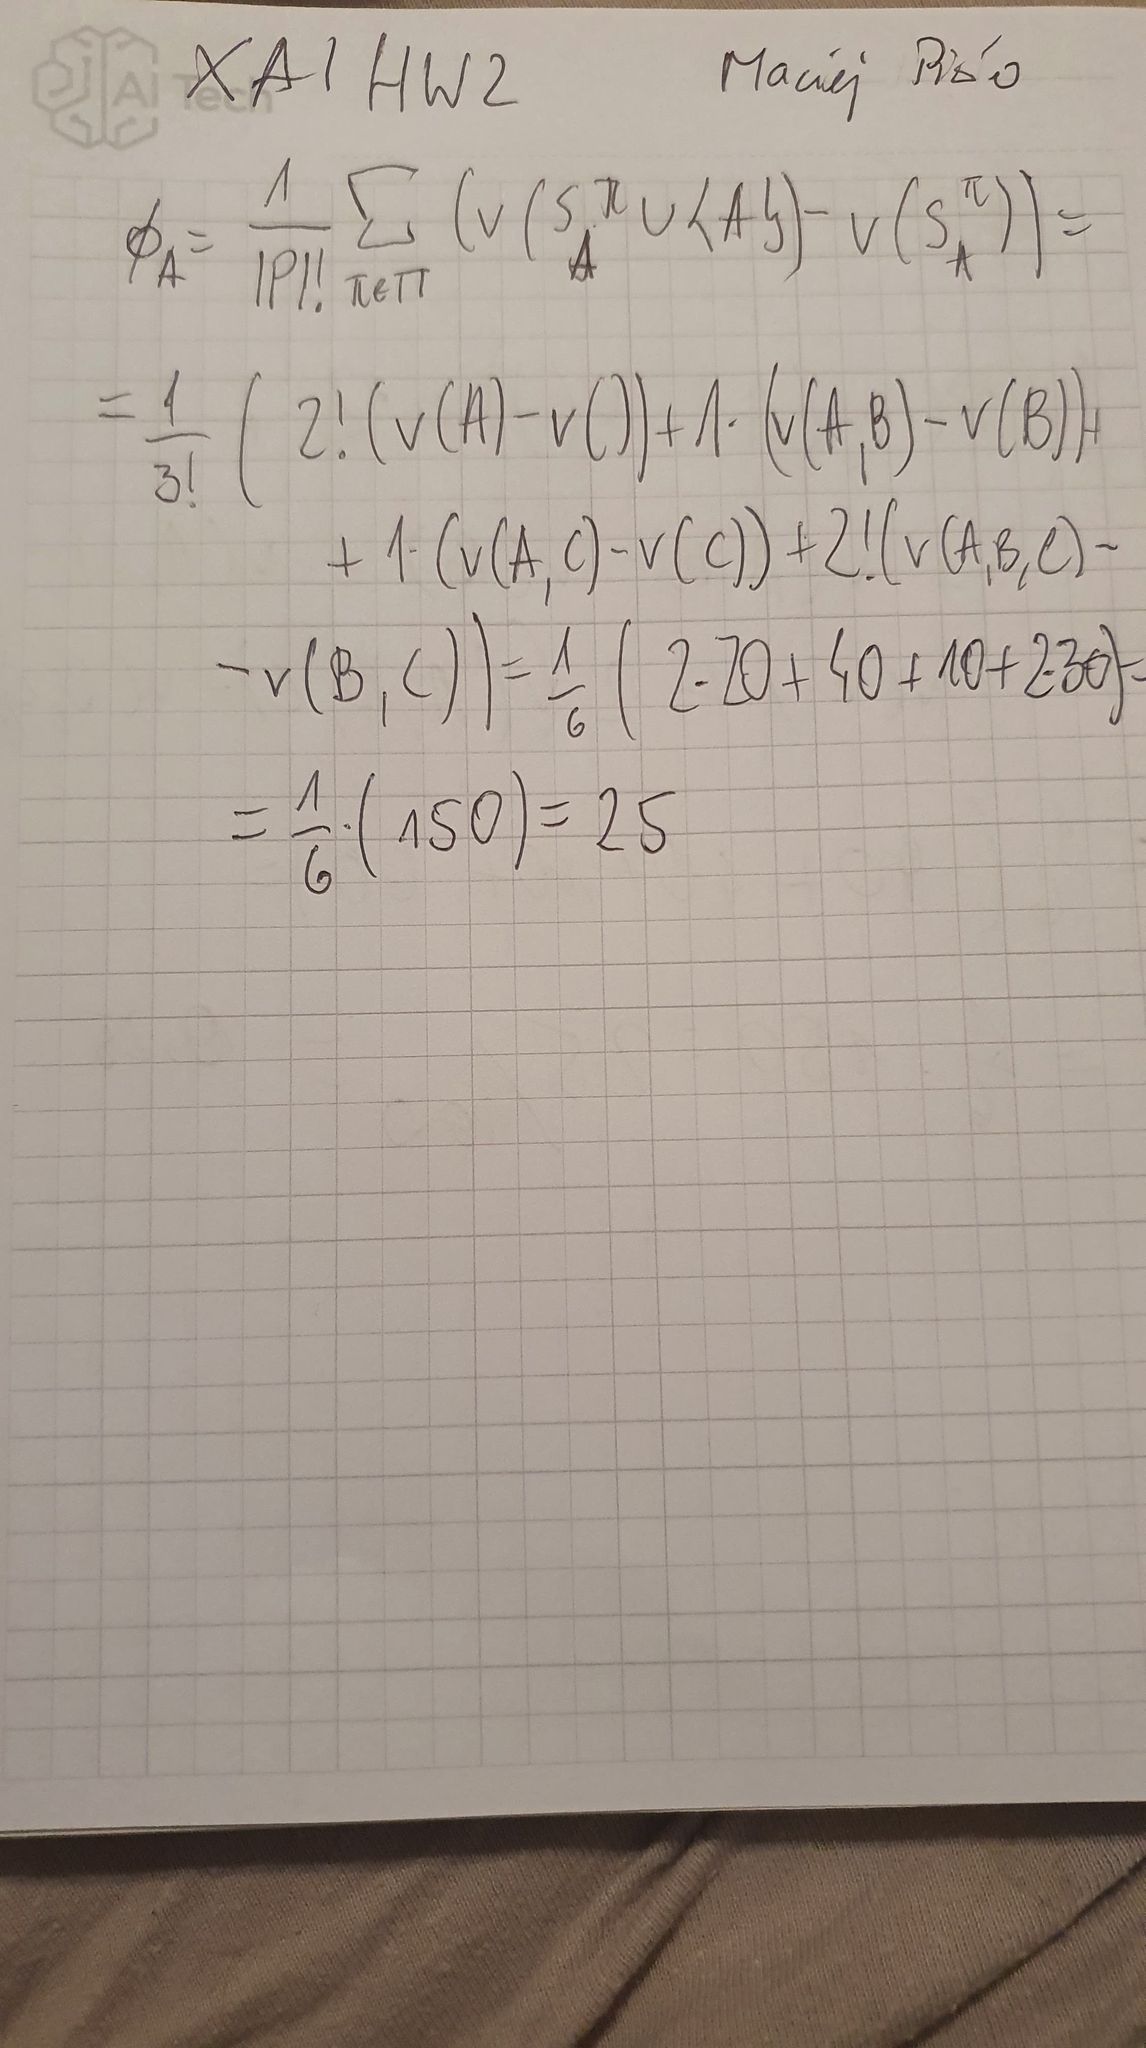 AI Tech
XAI HW2 Maciej
ϕ_A = 1/|P|! ∑_{π∈Π} (v(S_A^π ∪ {A}) - v(S_A^π)) =
= 1/3! ( 2! (v(A) - v()) + 1· (v(A,B) - v(B)) +
+ 1· (v(A,C) - v(C)) + 2! (v(A,B,C) -
- v(B,C)) = 1/6 ( 2·20 + 40 + 10 + 2·30) =
= 1/6 · (150) = 25